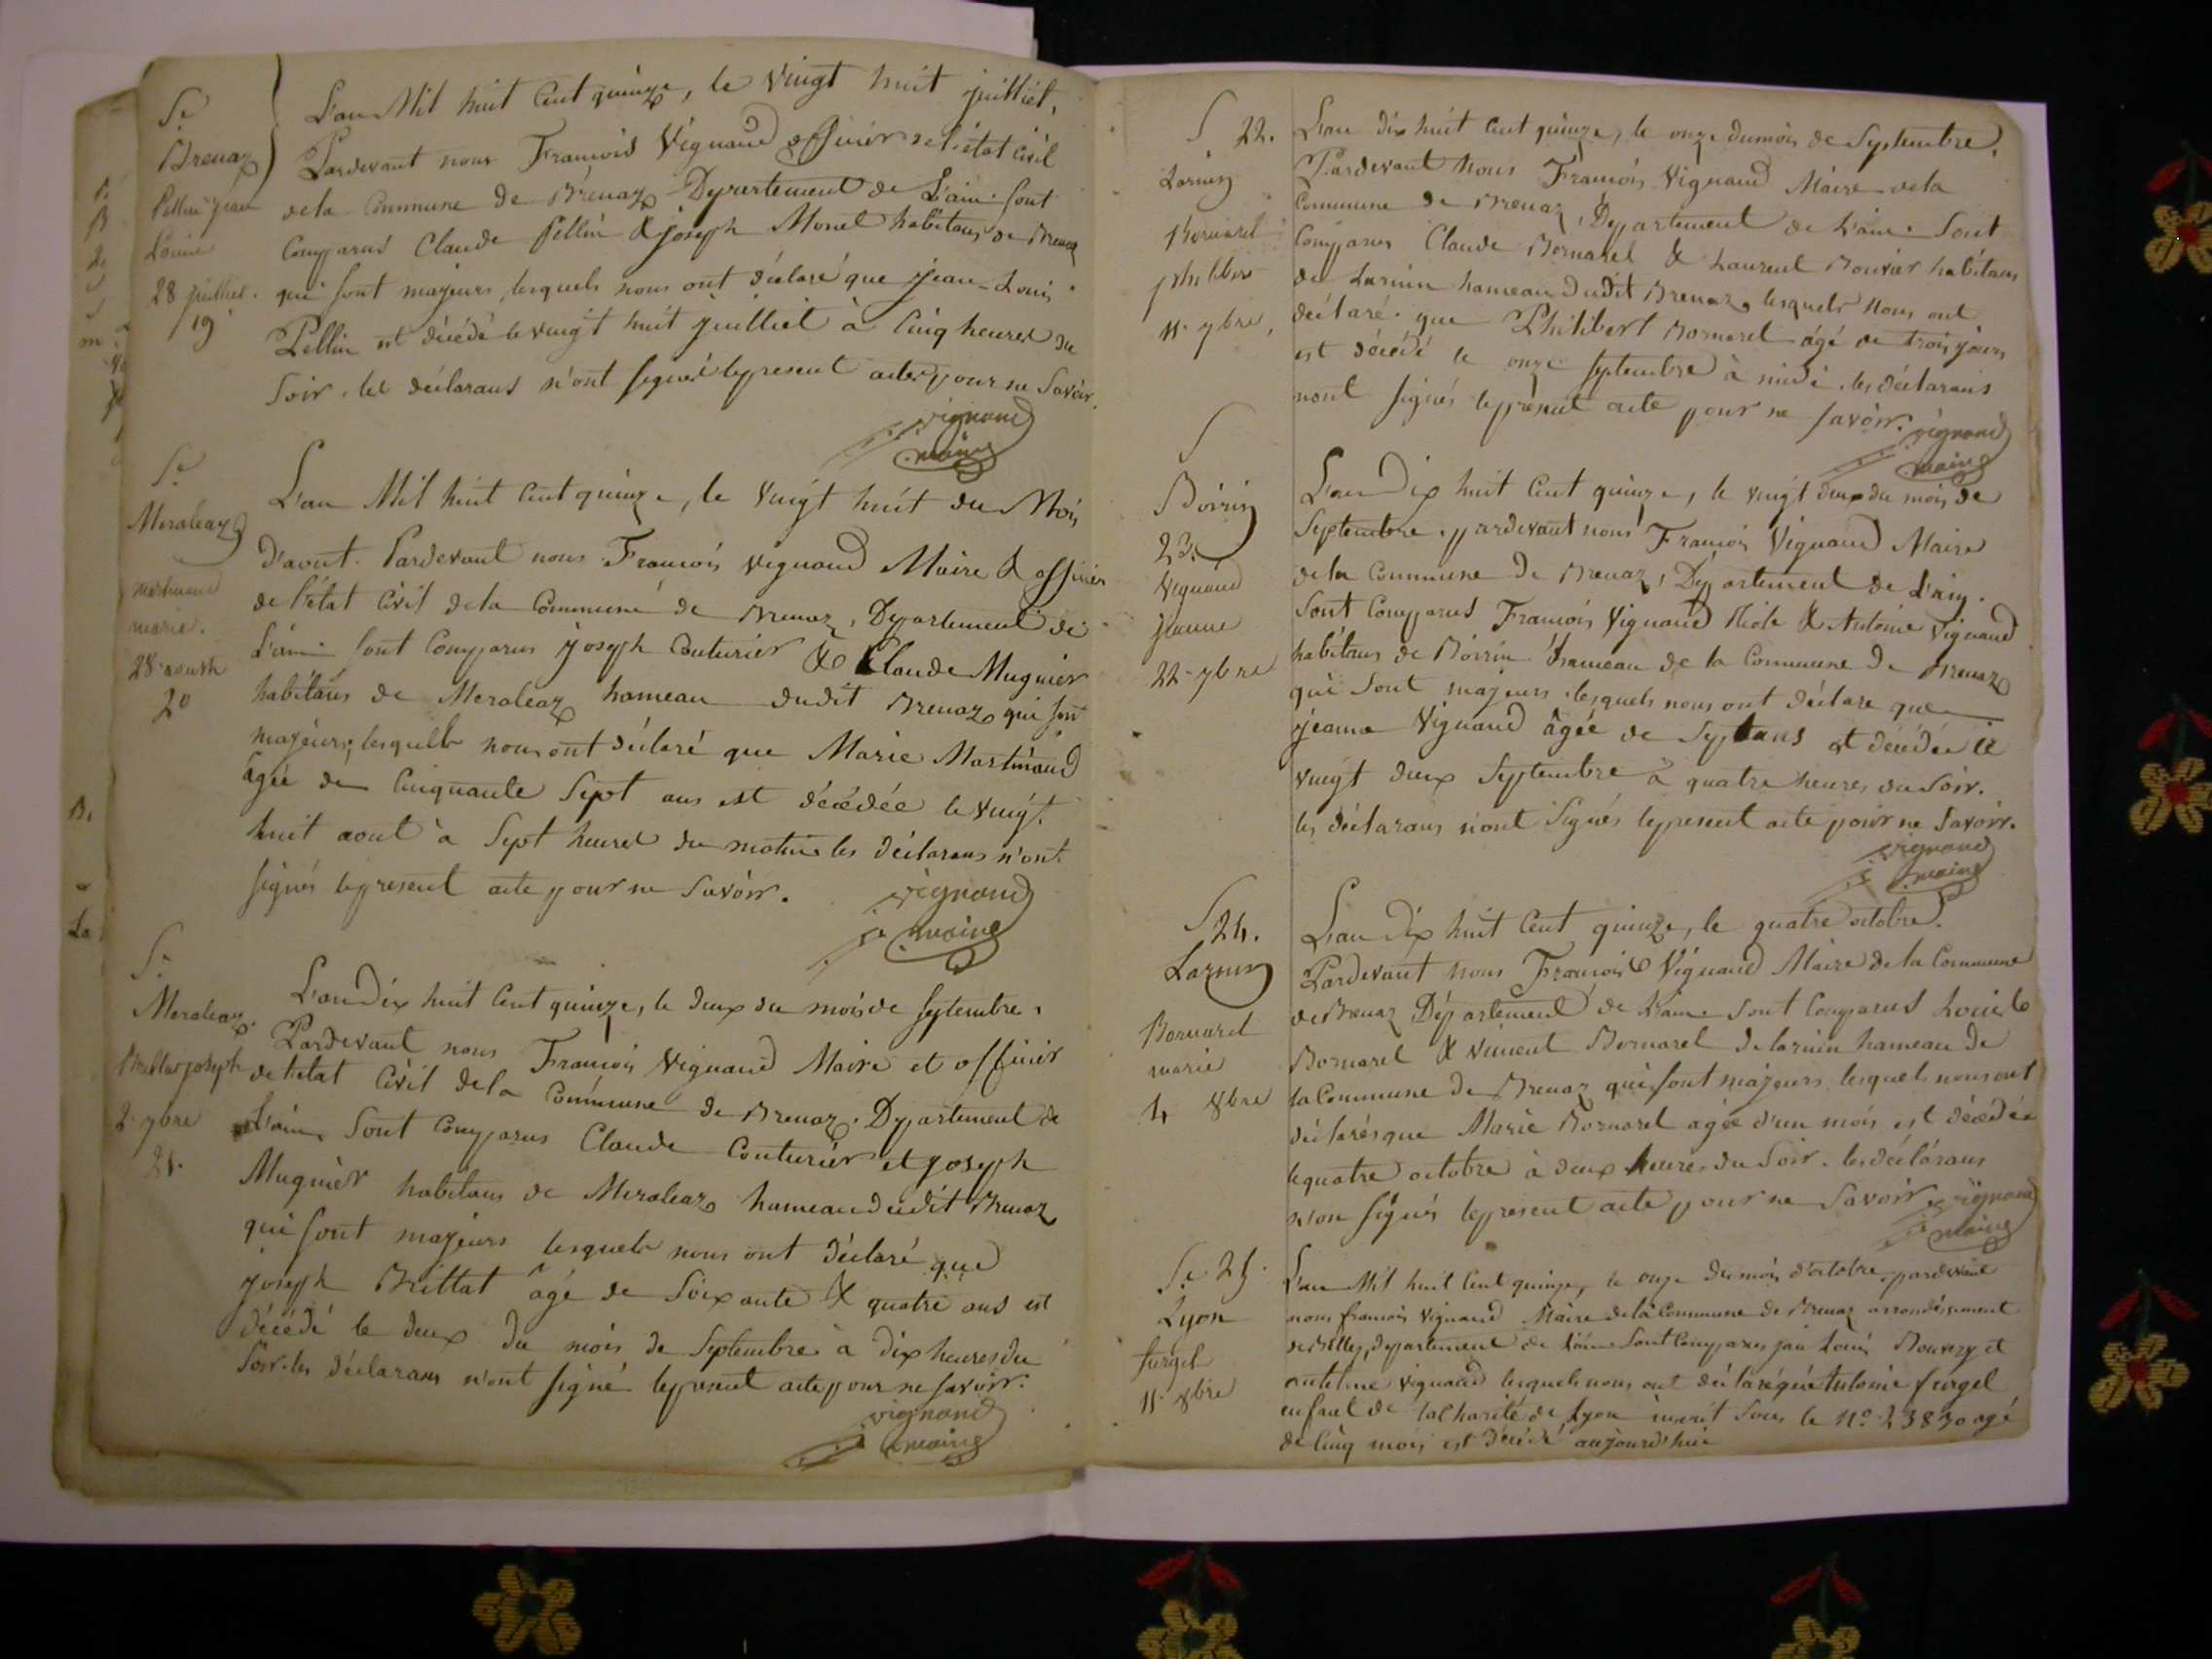 Se
Brenaz
Pellin jean
Louis
28 juillet.
19
L'an Mil huit Cent quinze, le vingt huit juilliet,
Pardevant nous François Vignaud officier de l'état Civil
de la Commune de Brenaz Département de L'ain. Sont
Comparus Claude Pellin & joseph Monet habitans de Brenaz
qui sont majeurs, lesquels nous ont déclaré que jean-Louis
Pellin est décédé le vingt huit juilliet à Cinq heures du
Soir. les déclarans n'ont signés le present acte pour ne Savoir.
vignaud
maire
Se
Meraleaz
martinand
marie.
28 aoust
20
L'an Mil huit Cent quinze, le vingt huit du Mois
D'aout. Pardevant nous François Vignaud Maire & officier
de l'état Civil de la Commune de Brenaz, Département de
L'ain. sont Comparus joseph Couturier & Claude Mugnier
habitans de Meraleaz hameau dudit Brenaz qui son
majeurs, lesquels nous ont déclaré que Marie Martinand
âgée de Cinquante Sept ans est décédée le vingt
huit aout à Sept heures du matin les déclarans n'ont
signés le present acte pour ne Savoir.
vignaud
maire
Se
Meraleaz.
Brillat joseph
2 7bre
21.
L'an Dix huit Cent quinze, le deux du mois de Septembre,
Pardevant nous François Vignaud Maire et officier
de l'etat Civil de la Commune de Brenaz. Département de
L'ain. Sont Comparus Claude Couturier et joseph
Mugnier habitans de Meraleaz hameau dudit Brenaz
qui sont majeurs lesquels nous ont déclaré que
joseph Brillat âgé de Soixante & quatre ans est
décédé le deux du mois de Septembre à dix heures du
Soir. les déclarans n'ont signé le present acte pour ne savoir.
vignaud
maire
S 22.
Larnin
Bornarel
philibert
11. 7bre,
L'an dix huit Cent quinze, le onze du mois de Septembre.
Pardevant Nous François Vignaud Maire de la
Commune de Brenaz, Département de L'ain. Sont
Comparus Claude Bornarel & Laurent Bouvier habitans
de Larnin hameau dudit Brenaz lesquels Nous ont
déclaré que Philibert Bornarel âgé de trois jours
est décédé le onze Septembre à midi. les déclarans
nont signés le présent acte pour ne savoir.
vignaud
maire
S
Boirin
23.
Vignaud
jeanne
22 - 7bre
L'an Dix huit Cent quinze, le vingt deux du mois de
Septembre. pardevant nous François Vignaud Maire
de la Commune de Brenaz, Département de L'ain.
Sont Comparus François Vignaud & Antoine Vignaud
habitans de Boirin hameau de la Commune de Brenaz
qui Sont majeurs. lesquels nous ont déclare que
jeanne Vignaud âgée de Sept ans est décédée le
vingt deux Septembre à quatre heures du Soir.
les déclarans n'ont Signés le present acte pour ne Savoir.
vignaud
maire
S 24.
Larnin
Bornarel
marie
4 8bre
L'an Dix huit Cent quinze, le quatre octobre.
Pardevant nous François Vignaud Maire de la Commune
de Brenaz Département de L'ain. Sont Comparus Louis
Bornarel & vincent Bornarel de larnin hameau de
la Commune de Brenaz qui sont majeurs lesquels nous ont
déclarés que Marie Bornarel agée d'un mois est décédée
le quatre octobre à deux heures du Soir. les déclarans
n'on signés le present acte pour ne Savoir.
vignaud
maire
Se 25.
Lyon
furgel
11. 8bre
L'an Mil huit Cent quinze, le onze du mois d'octobre pardevant
nous françois Vignaud Maire de la Commune de Brenaz arrondissement
de Belley, département de l'ain. Sont Comparus jean Louis Bouvery et
antelme Vignaud lesquels nous ont déclaré que Antoine furgel
enfant de la Charité de Lyon inscrit Sous le No. 23830 agé
de Cinq mois est décédé aujourd'hui